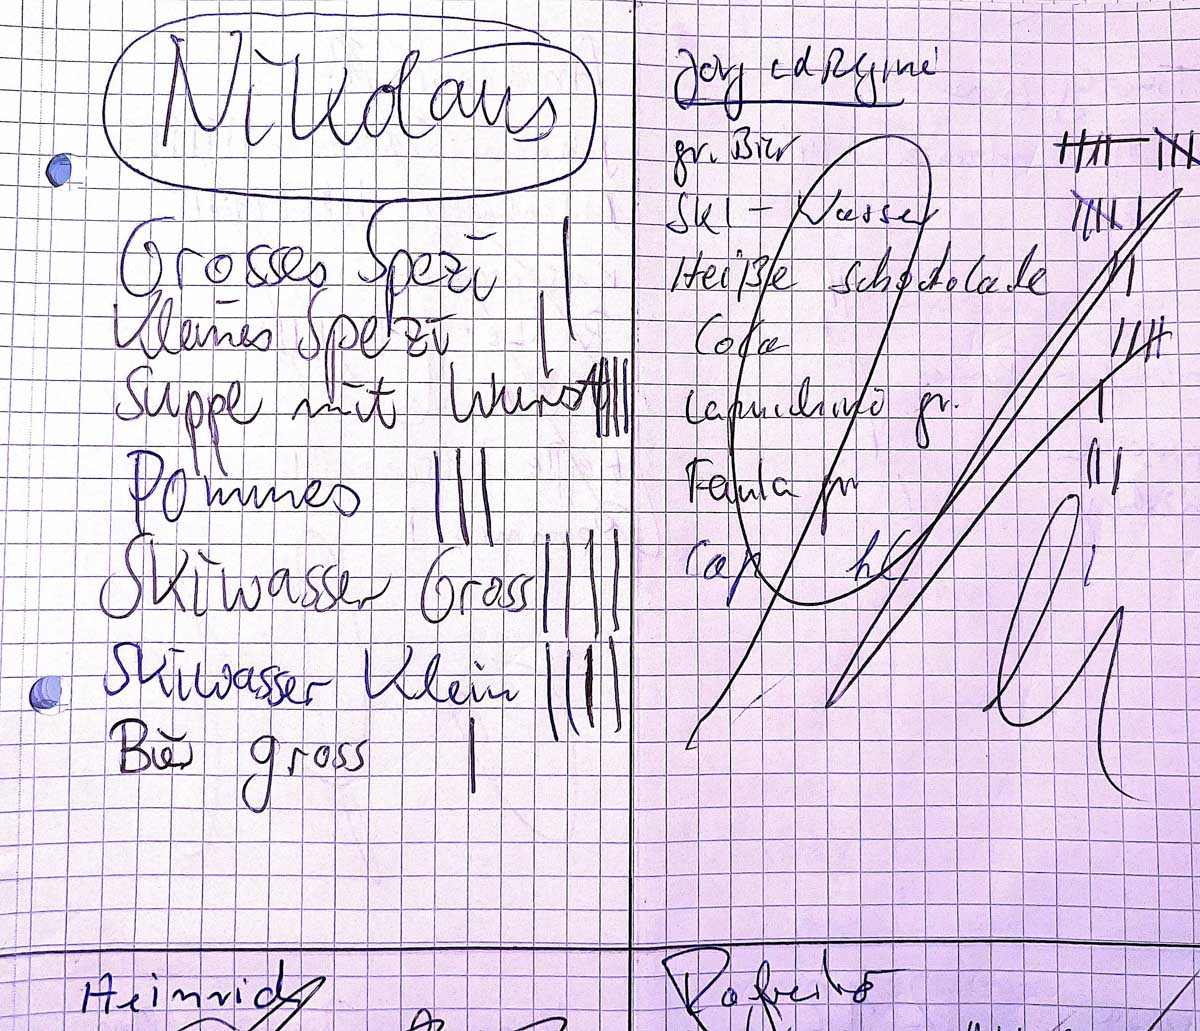 Nikolaus
Grosses Spezi |
Kleines Spezi |
Suppe mit Wurst |||||
Pommes |||
Skiwasser Gross ||||
Skiwasser Klein ||||
Bier gross |
gr. Bier
Ski - Wasser
Heiße Schokolade ||
Cola
gr. |
|||
Cap kl |
Heinrich